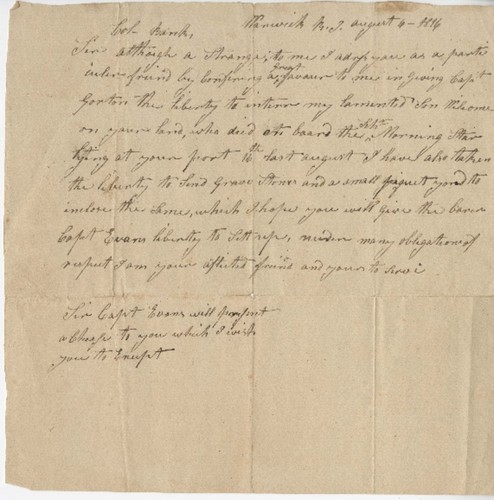 Col. Bank, Warwick R.I. August 6 - 1816
Sir although a Stranger to me I adress you as a parti
culer friend by Confering a great favour to me in Giving Capt
Gorton the liberty to interr my lamented Son Welcome
on your land, who died on board the Schr Morning Star
lying at your port 16th last august I have also taken
the liberty to Send Grave Stones and a small to
inclose the Same, which I hope you will Give the barer
Capt Evans liberty to Sett up, under many obligations of
respect I am your aflicted friend and yours to Serve
Sir Capt Evans will present
a Cheese to you which I wish
you to Except